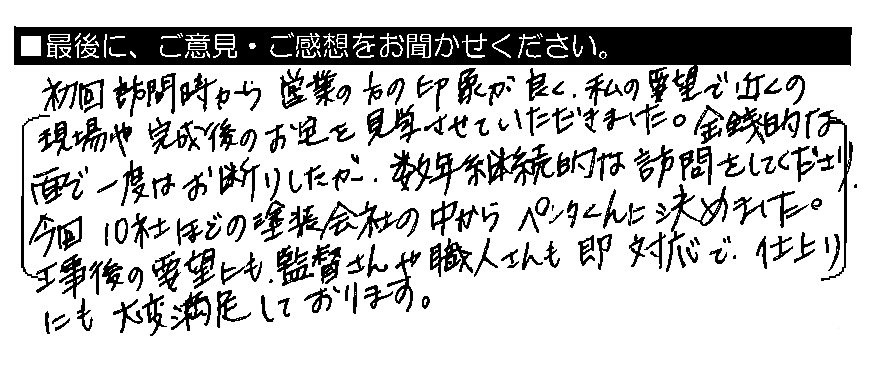 ■最後に、ご意見・ご感想をお聞かせください。
初回訪問時から営業の方の印象が良く、私の要望で近くの
現場や完成後のお宅を見学させていただきました。金銭的な
面で一度はお断りしたが、数年継続的な訪問をしてくださり、
今回10社ほどの塗装会社の中からペンタくんに決めました。
工事後の要望にも、監督さんや職人さんも即対応で、仕上り
にも大変満足しております。